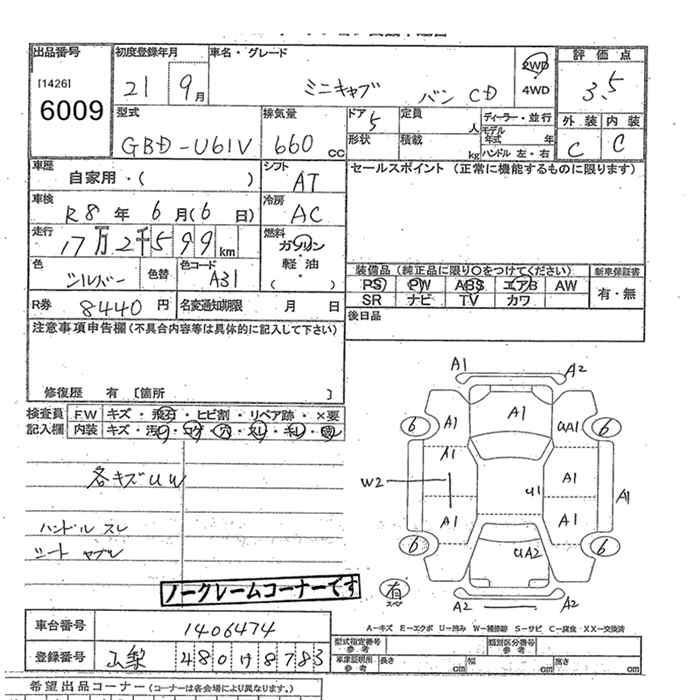 出品番号
[1426]
6009
初度登録年月
21 9月
車名・グレード
ミニキャブ バン CD
2WD
4WD
評価点
3.5
外装 内装
C C
型式
GBD-U61V
排気量
660 cc
ドア 5
形状
定員 人
積載 kg
ディーラー・並行
モデル
年式 年
ハンドル 左・右
車歴
自家用・( )
シフト
AT
セールスポイント (正常に機能するものに限ります)
車検
R8年 6月(6日)
冷房
AC
走行
17万2千599km
燃料
ガソリン
軽油
( )
色
シルバー
色替
色コード
A31
装備品 (純正品に限り〇をつけてください)
新車保証書
PS PW ABS エアB AW
SR ナビ TV カワ
有・無
R券 8440円
名変通知期限 月 日
後日品
注意事項申告欄(不具合内容等は具体的に記入して下さい)
修復歴 有 〔箇所 〕
検査員
記入欄
F.W キズ・飛石・ヒビ割・リペア跡・×要
内装 キズ・汚・コゲ・穴・スレ・キレ・
各キズUW
ハンドル スレ
シート ヤブレ
ノークレームコーナーです
A1 A2
6 A1 A1 uA1 6
A1
W2 A1
u1 A1
A1 A1
6 uA2 6
有
スペア
A2 A2
A-キズ E-エクボ U-凹み W-補修跡 S-サビ C-腐食 XX-交換済
車台番号
1406474
登録番号
山梨 480け8783
型式指定番号
参考
類別区分番号
参考
車庫証明用
参考
長さ cm
幅 cm
高さ cm
希望出品コーナー(コーナーは各会場により異なります。)